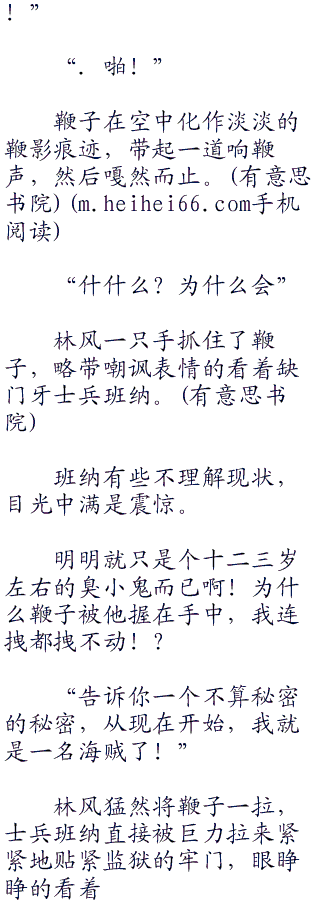 ！”
“．啪！”
鞭子在空中化作淡淡的
鞭影痕迹，带起一道响鞭
声，然后嘎然而止。(有意思
书院)(m.heihei66.com手机
阅读)
“什什么？为什么会”
林风一只手抓住了鞭
子，略带嘲讽表情的看着缺
门牙士兵班纳。(有意思书
院)
班纳有些不理解现状，
目光中满是震惊。
明明就只是个十二三岁
左右的臭小鬼而已啊！为什
么鞭子被他握在手中，我连
拽都拽不动！？
“告诉你一个不算秘密
的秘密，从现在开始，我就
是一名海贼了！”
林风猛然将鞭子一拉，
士兵班纳直接被巨力拉来紧
紧地贴紧监狱的牢门，眼睁
睁的看着